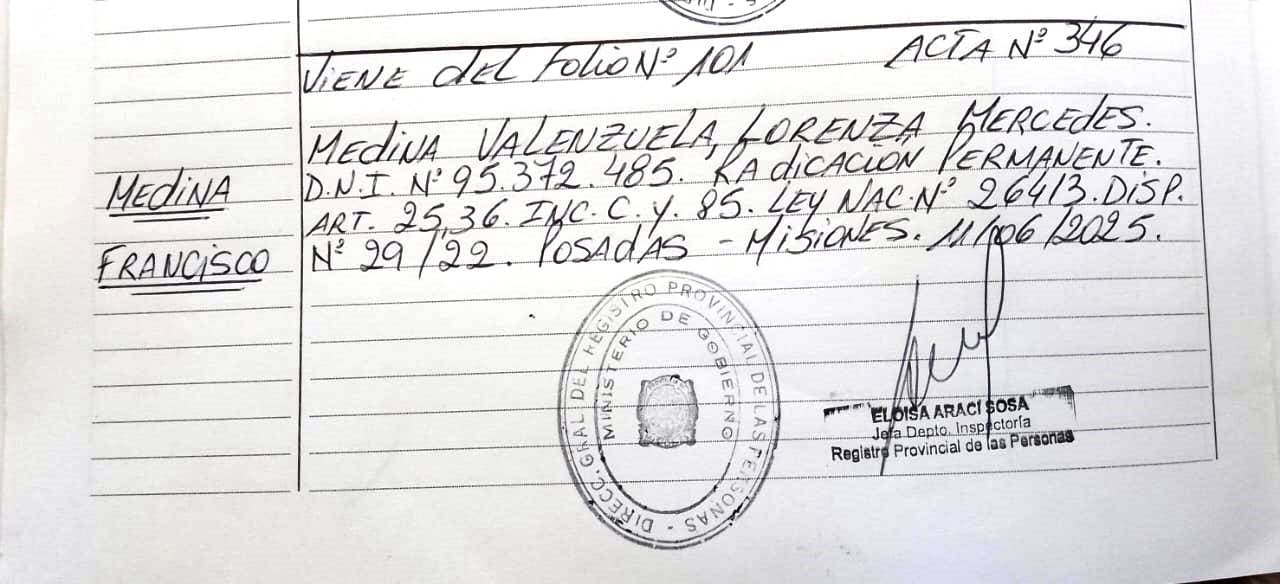 Viene del Folio Nº 101 ACTA Nº 346
Medina Valenzuela, Lorenza Mercedes.
D.N.I. Nº 95.372.485. Radicación Permanente.
Medina
Art. 25,36. Inc. C. y. 85. Ley Nac. Nº 26413. Disp.
Francisco
Nº 29/22. Posadas - Misiones. 11/06/2025.
DIRECC. GRAL. DEL REGISTRO PROVINCIAL DE LAS PERSONAS -
MINISTERIO DE GOBIERNO
ELOISA ARACI SOSA
Jefa Depto. Inspectoría
Registro Provincial de las Personas